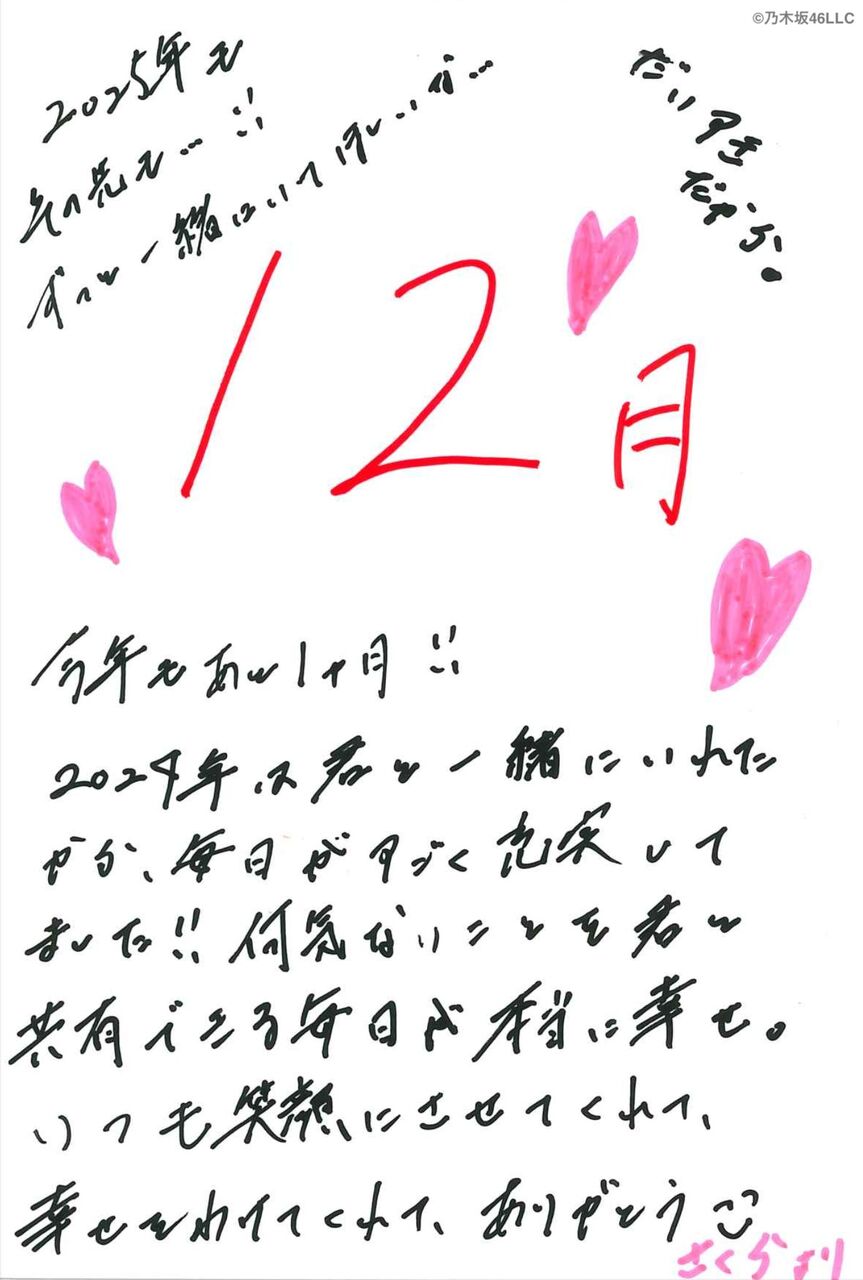 ©乃木坂46LLC
2025年も
その先も…!!
ずっと一緒にいてほしいな…
だいすき
だから。
12月
今年もあと1ヶ月!!
2024年は君と一緒にいれた
から、毎日がすごく充実して
ました!!何気ないことを君と
共有できる毎日が本当に幸せ。
いつも笑顔にさせてくれて、
幸せをわけてくれて、ありがとう
さくらより